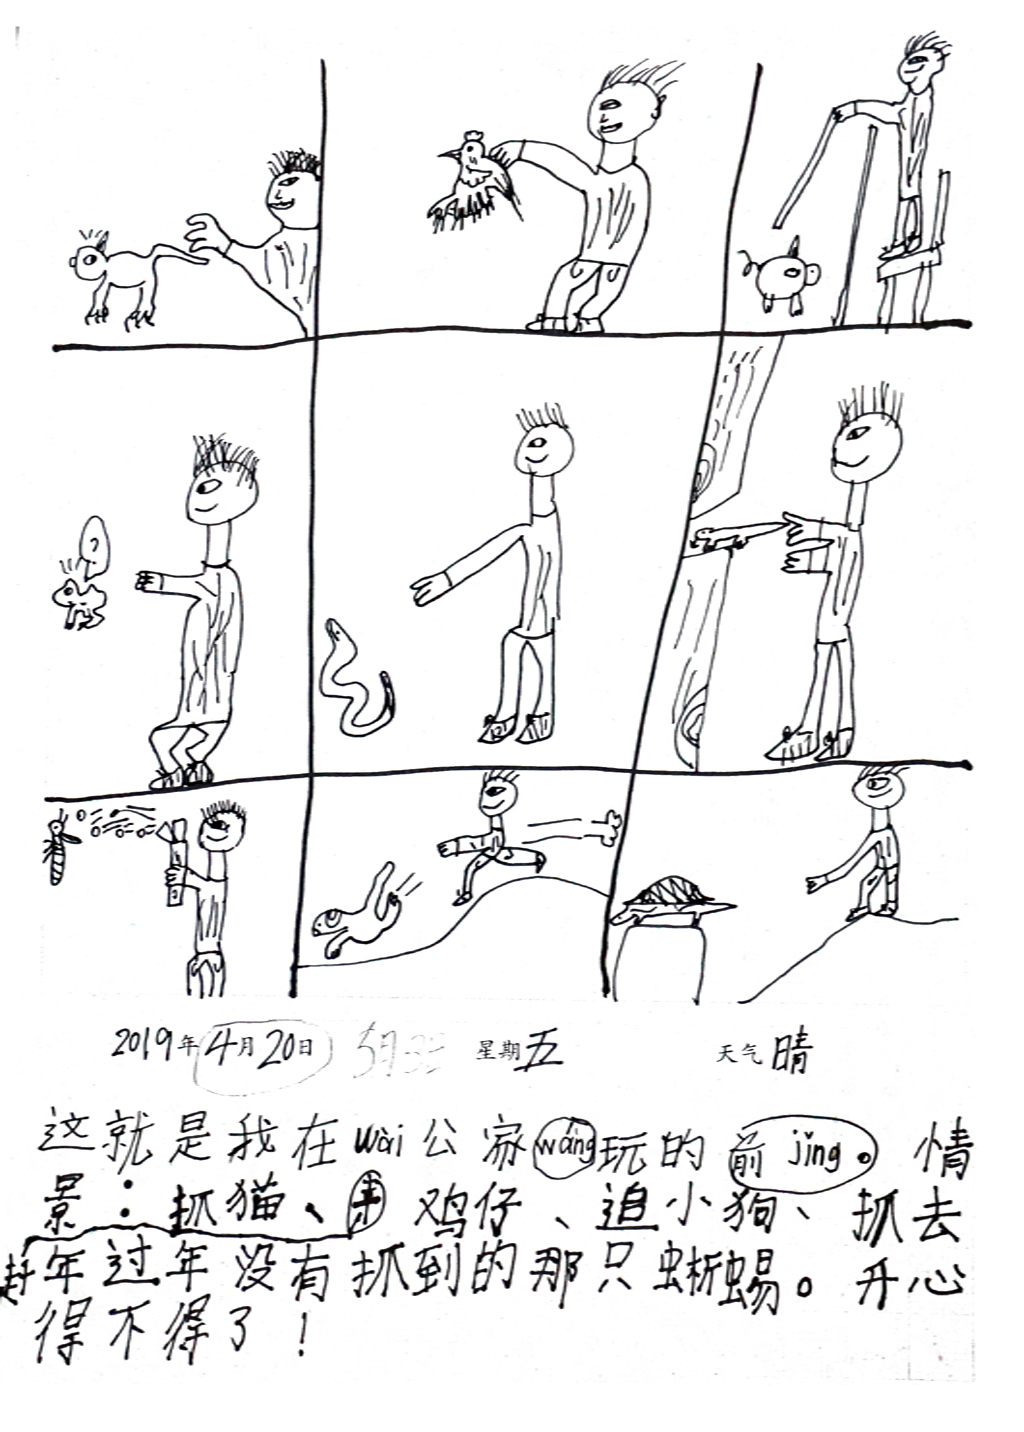 ?
2019年4月20日 星期五 天气晴
这就是我在wài公家wáng玩的前jǐng。情
景：抓猫、鸡仔、追小狗、抓去
赶年过年没有抓到的那只蜥蜴。开心
得不得了！